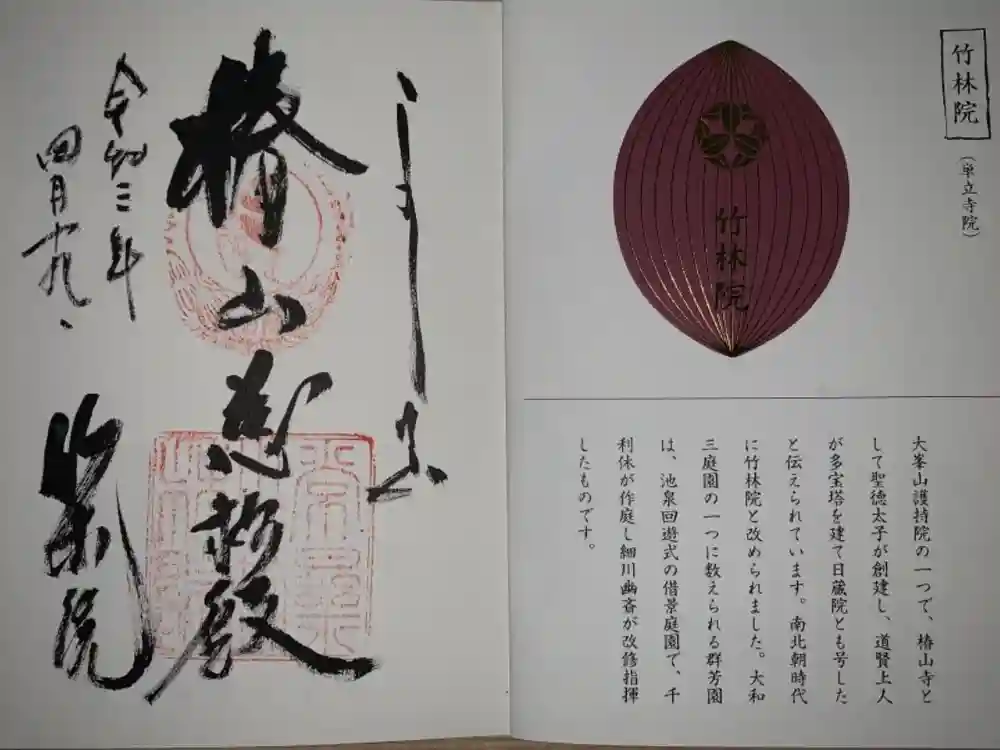 竹林院
（単立寺院）
竹林院
大峯山護持院の一つで、椿山寺と
して聖徳太子が創建し、道賢上人
が多宝塔を建て日蔵院とも号した
と伝えられています。南北朝時代
に竹林院と改められました。大和
三庭園の一つに数えられる群芳園
は、池泉回遊式の借景庭園で、千
利休が作庭し細川幽斎が改修指揮
したものです。
よしの
椿山
殿
令和三年
四月十九日
竹林院